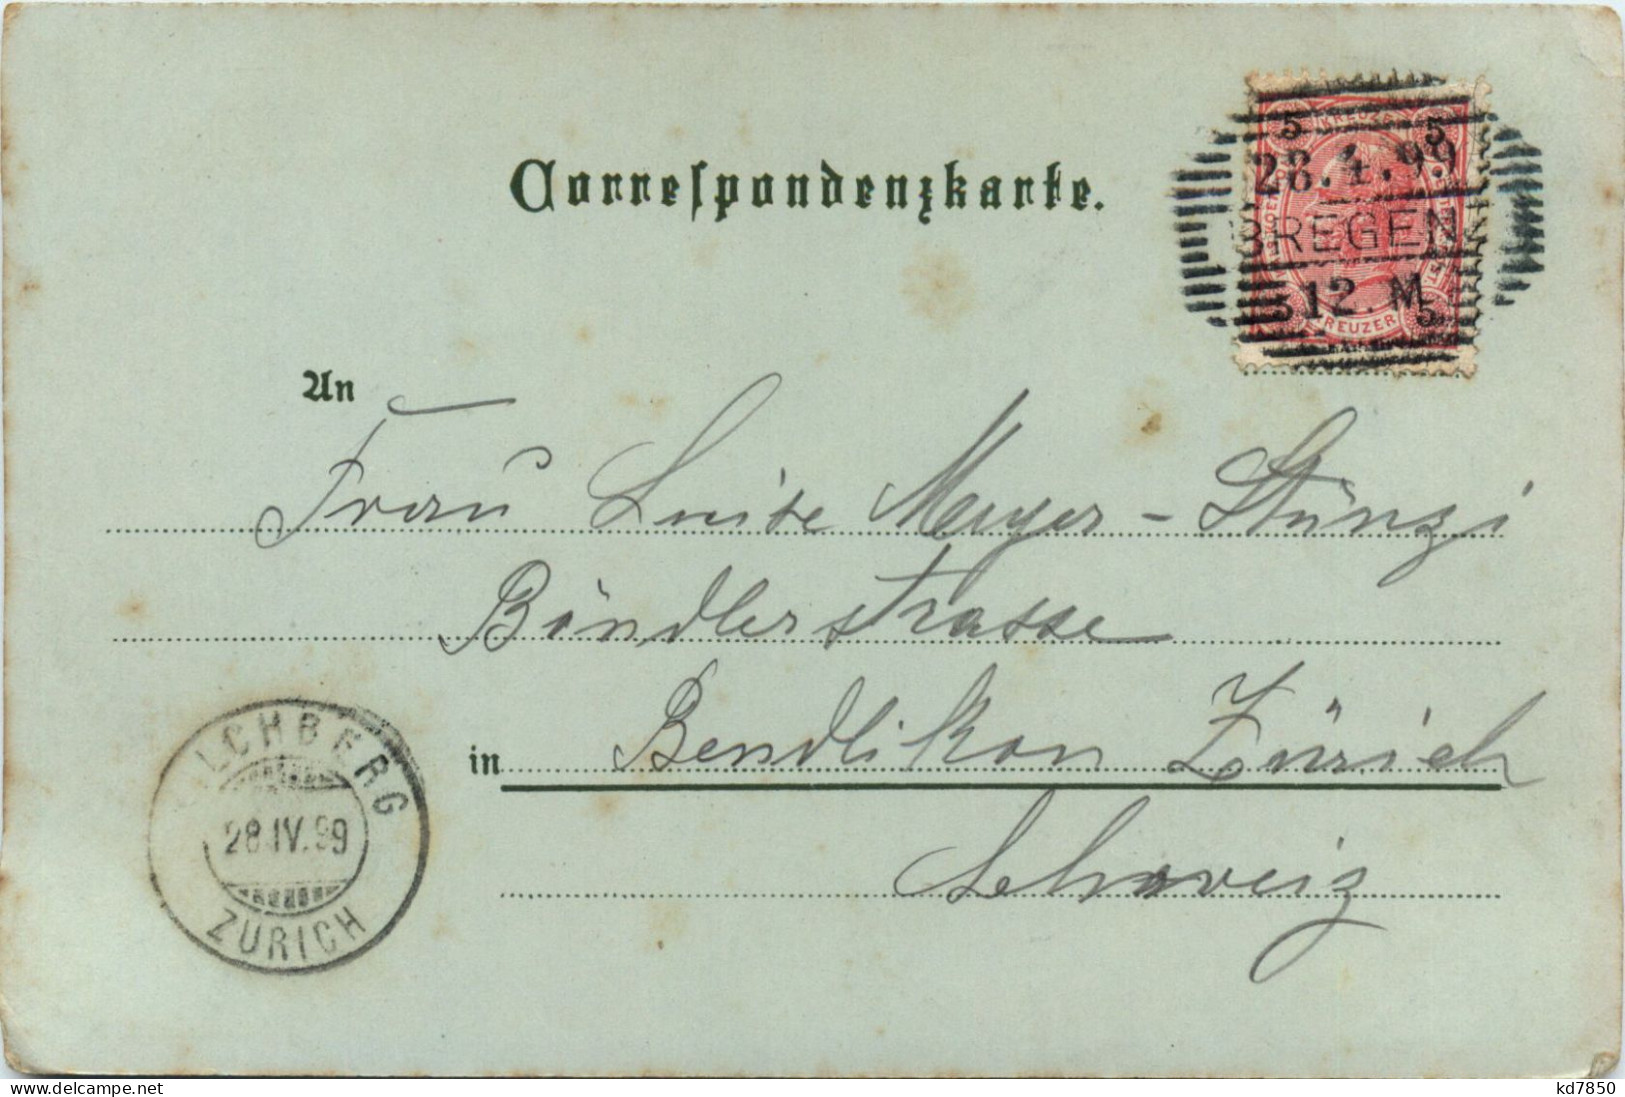 Correspondenzkarte.
5 KREUZER 5
28.4.99
BREGEN
12.M
5 KREUZER 5
An
Frau Luise Meyer-Stünzi
Böndlerstrasse
in Bendlikon Zürich
Schweiz
ILCHBERG
28.IV.99
ZÜRICH
www.delcampe.net
kd7850